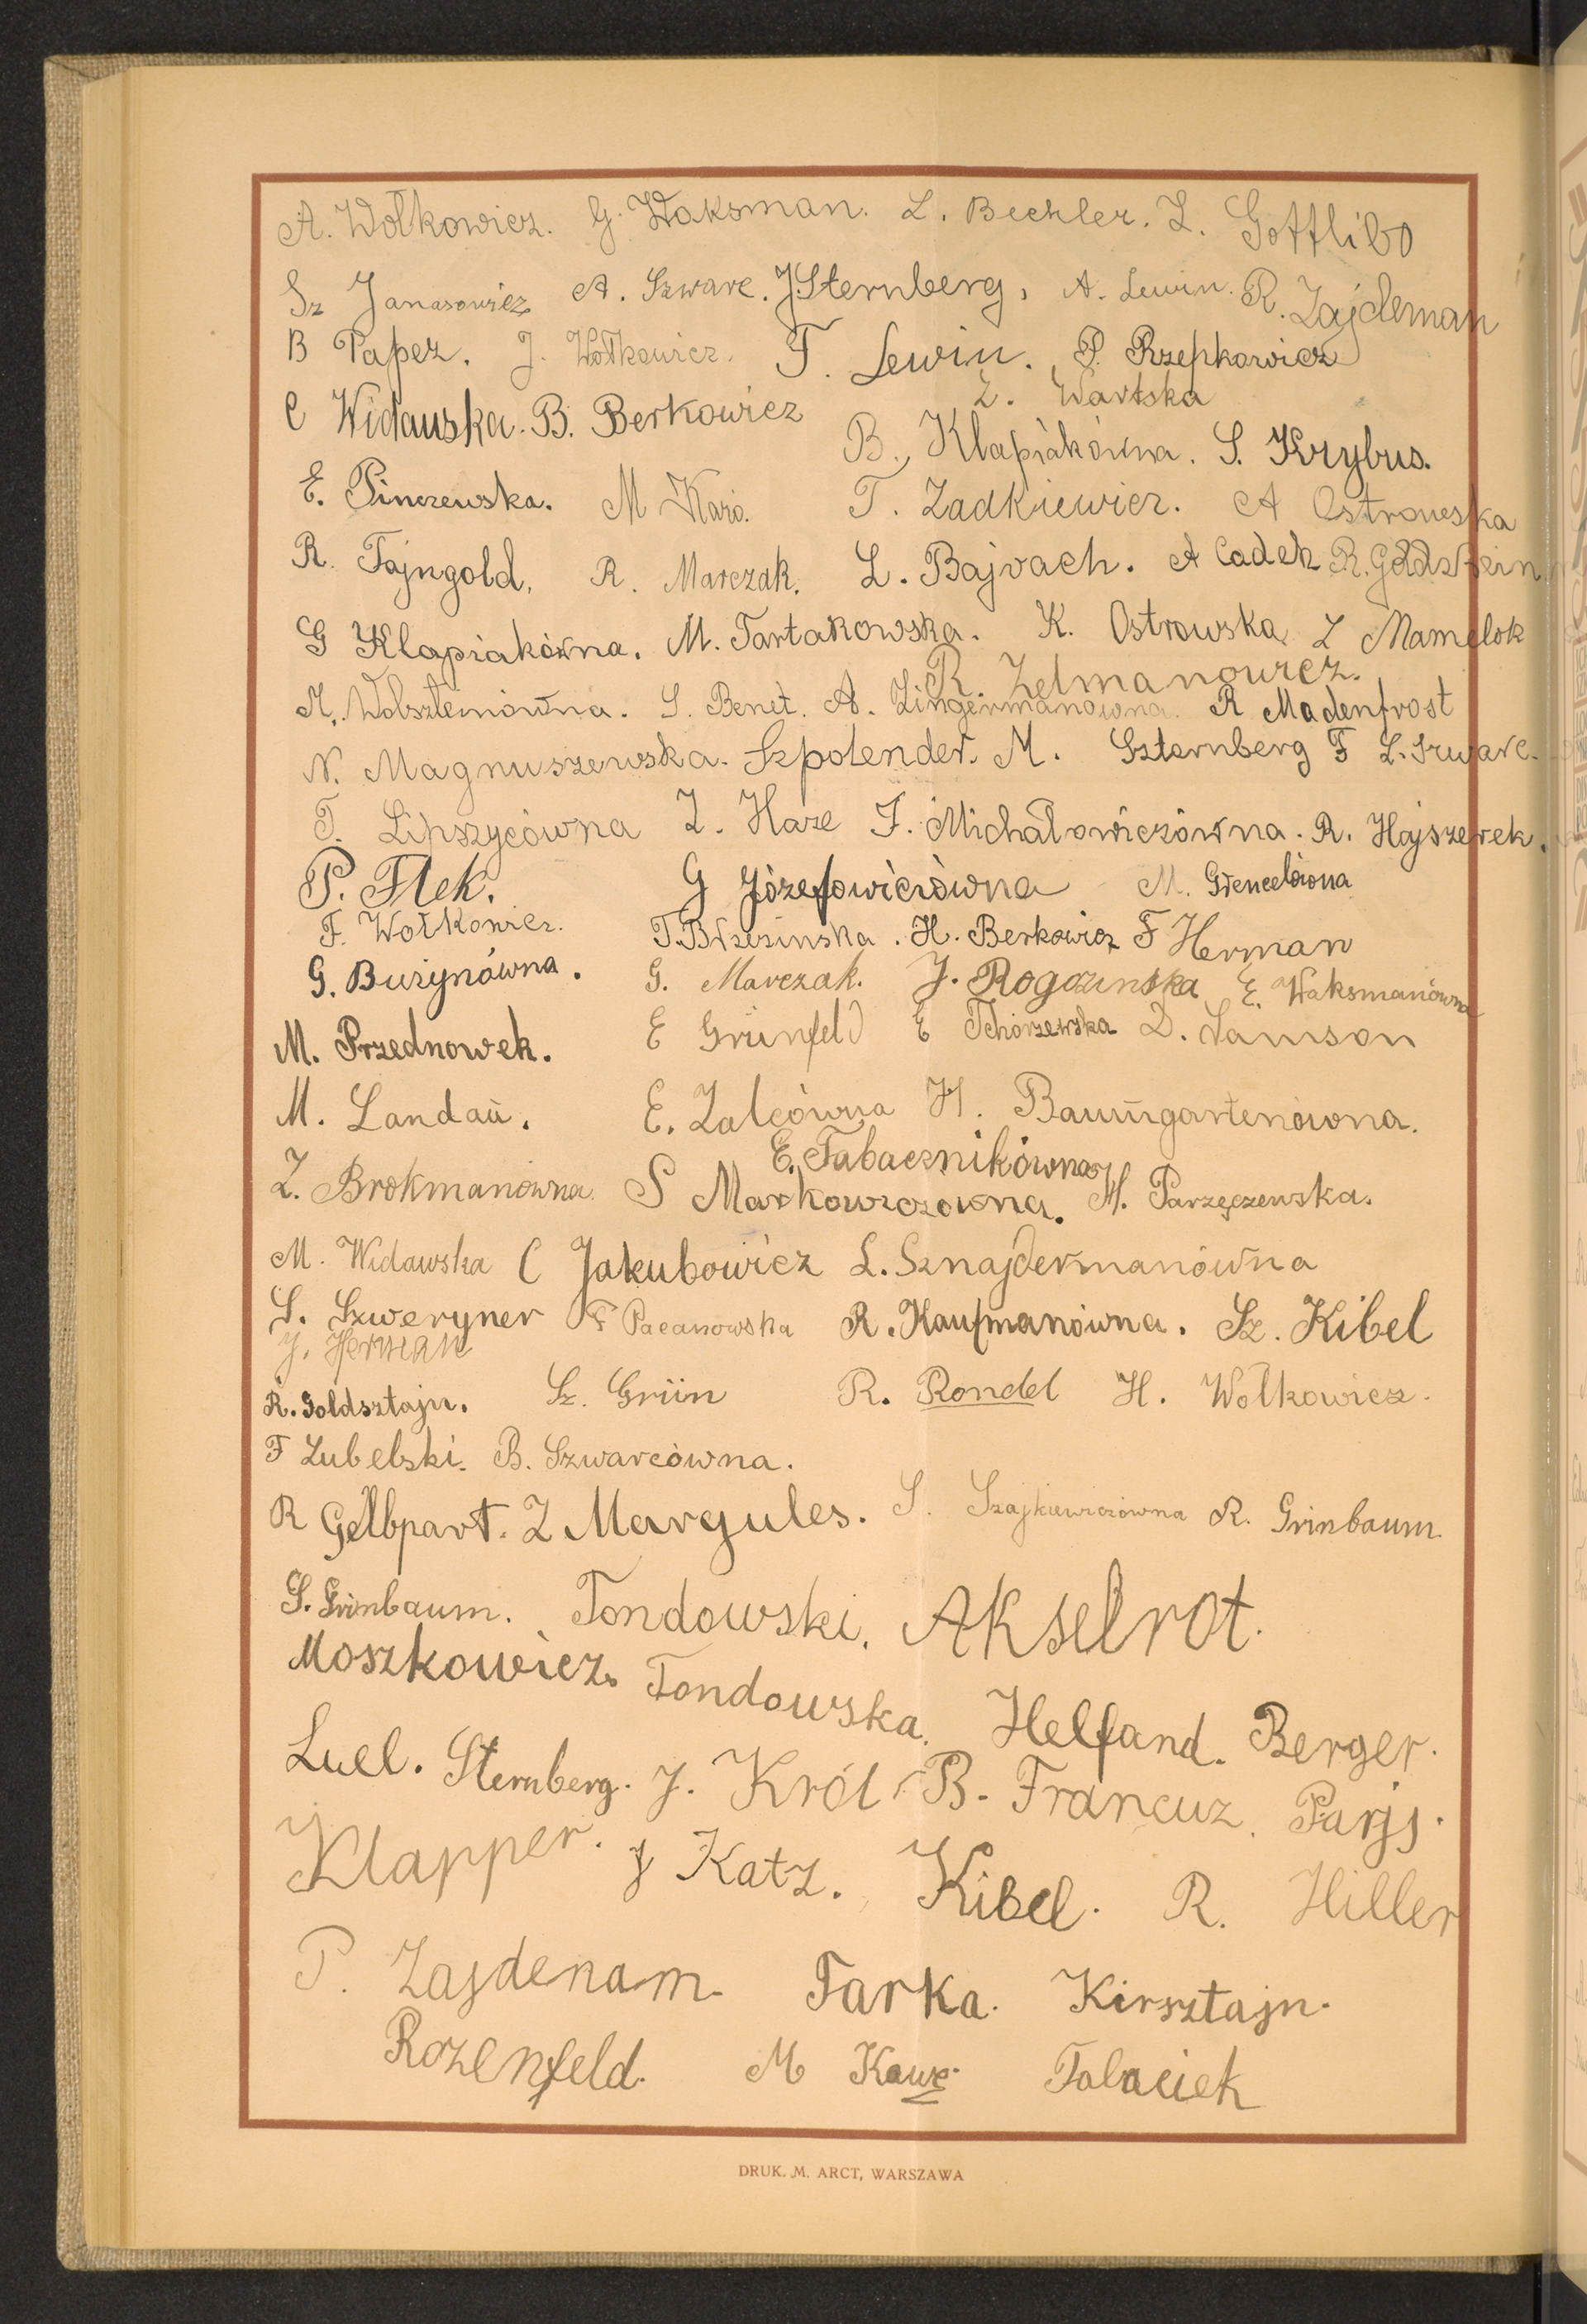 A. Wołkowicz. G. Waksman. L. Bechler. Z. Gottlib
Sz Janasowicz A. Szwarc. J Sternberg, A. Lewin. R. Zajdeman
B Papez. J. Wołkowicz. T. Lewin. P. Rzepkowicz
C Widauska. B. Berkowicz Z. Wartska
B. Klapiakówna. S. Krybus.
E. Pinczewska. M Karo. T. Zadkiewicz. A Ostrowska
R. Fajngold. R. Marczak. L. Bajrach. A Cadek R. Goldsztein
G Klapiakówna. M. Tartakowska. K. Ostrowska Z Mamelok
R. Zelmanowicz.
M. Wolsztenówna. S. Benet. A. Zingermanówna. R Madenfrost
N. Magnuszewska. Szpolender. M. Szternberg F L. Szwarc.
T. Lipszycówna Z. Haze F. Michałowiczówna. R. Hajszerek.
P. Flek. G Józefowiczówna M. Grencelówna
F. Wołkowicz. T. Brzezinska. H. Berkowicz F Herman
G. Buzynówna. G. Marczak. J. Rogozinska E. Waksmanówna
M. Przednowek. E Grünfeld E Tchorzewska D. Samson
M. Landau. E. Zalcówna H. Baumgartenówna.
E. Tabacznikówna
Z. Brokmanówna. S Markowiczówna. M. Parzęczewska.
M. Widawska C Jakubowicz L. Sznajdermanówna
S. Szweryner F Pacanowska R. Kaufmanówna. Sz. Kibel
J. Herman
R. Goldsztajn. Sz. Grün R. Rondel H. Wołkowicz.
F Lubelski. B. Szwarcówna.
R Gelbpart. Z Margules. S. Szajkiewiczówna R. Grinbaum.
S. Grinbaum. Tondowski. Akselrot.
Moszkowicz. Tondowska. Helfand. Berger.
Luel. Sternberg. J. Król B. Francuz. Paryj.
Klapper. J Katz. Kibel. R. Hiller
P. Zajdenam. Tarka. Kirsztajn.
Rozenfeld. M Kawe. Talaciek
DRUK. M. ARCT, WARSZAWA